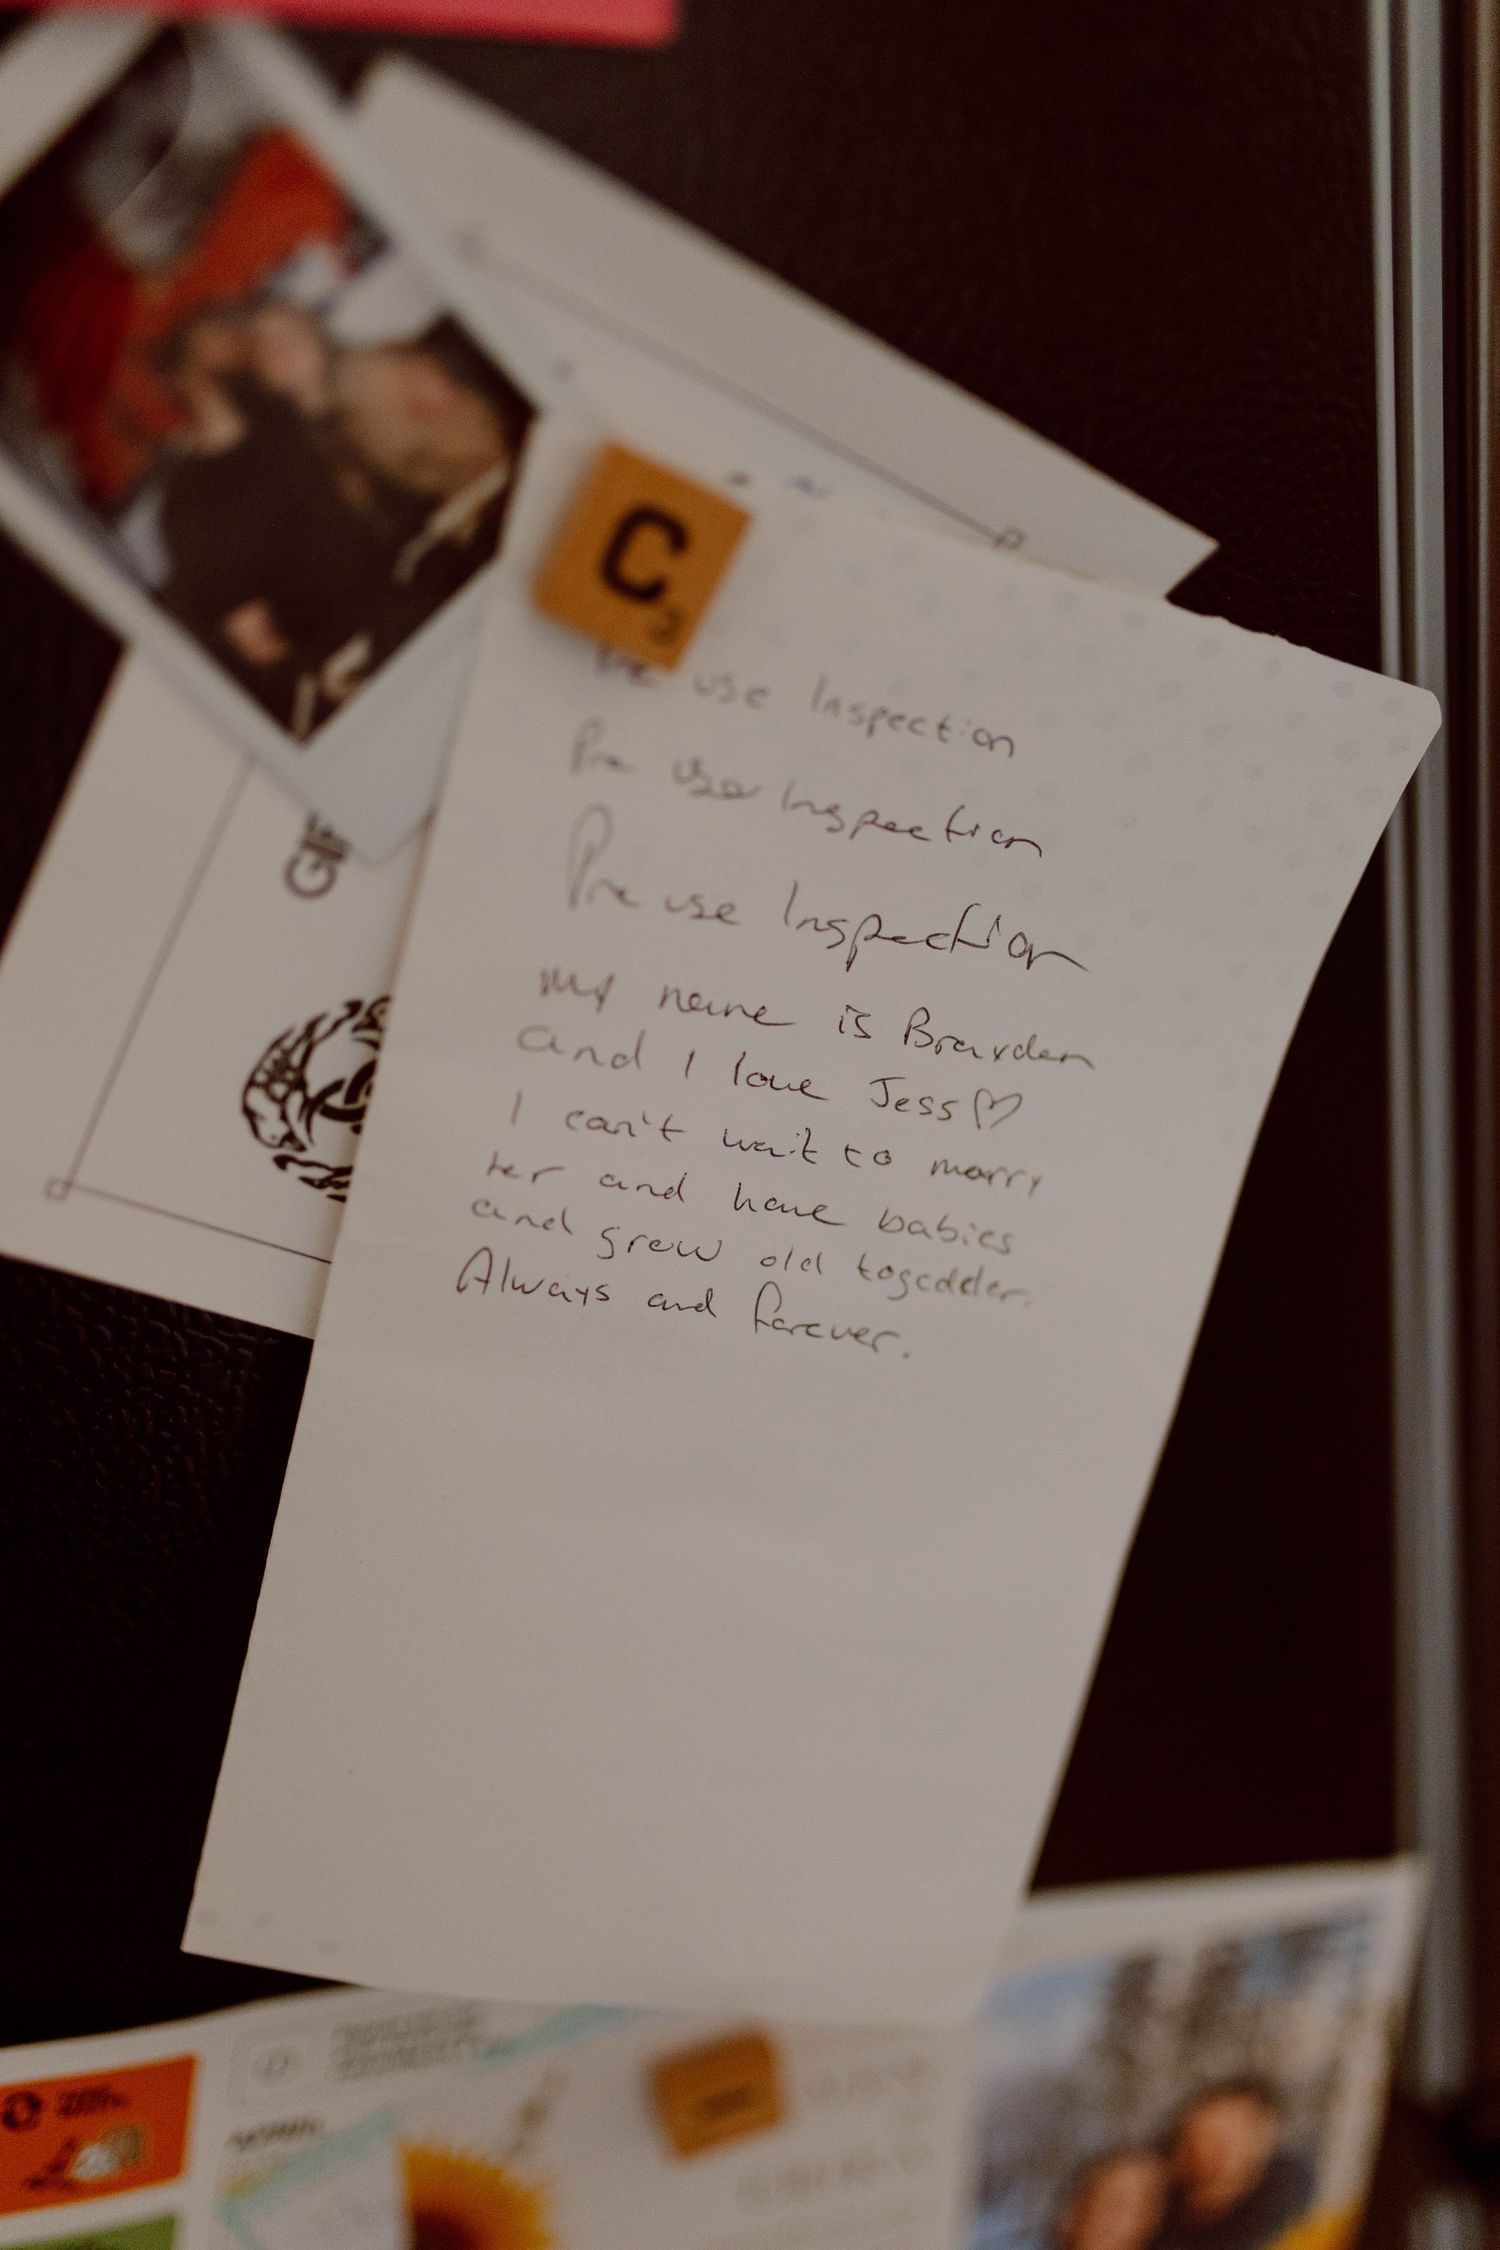 C
Pre use Inspection
Pre use Inspection
Pre use Inspection
my name is Brayden
and I love Jess♡
I can't wait to marry
her and have babies
and grow old togedder.
Always and forever.
GIF